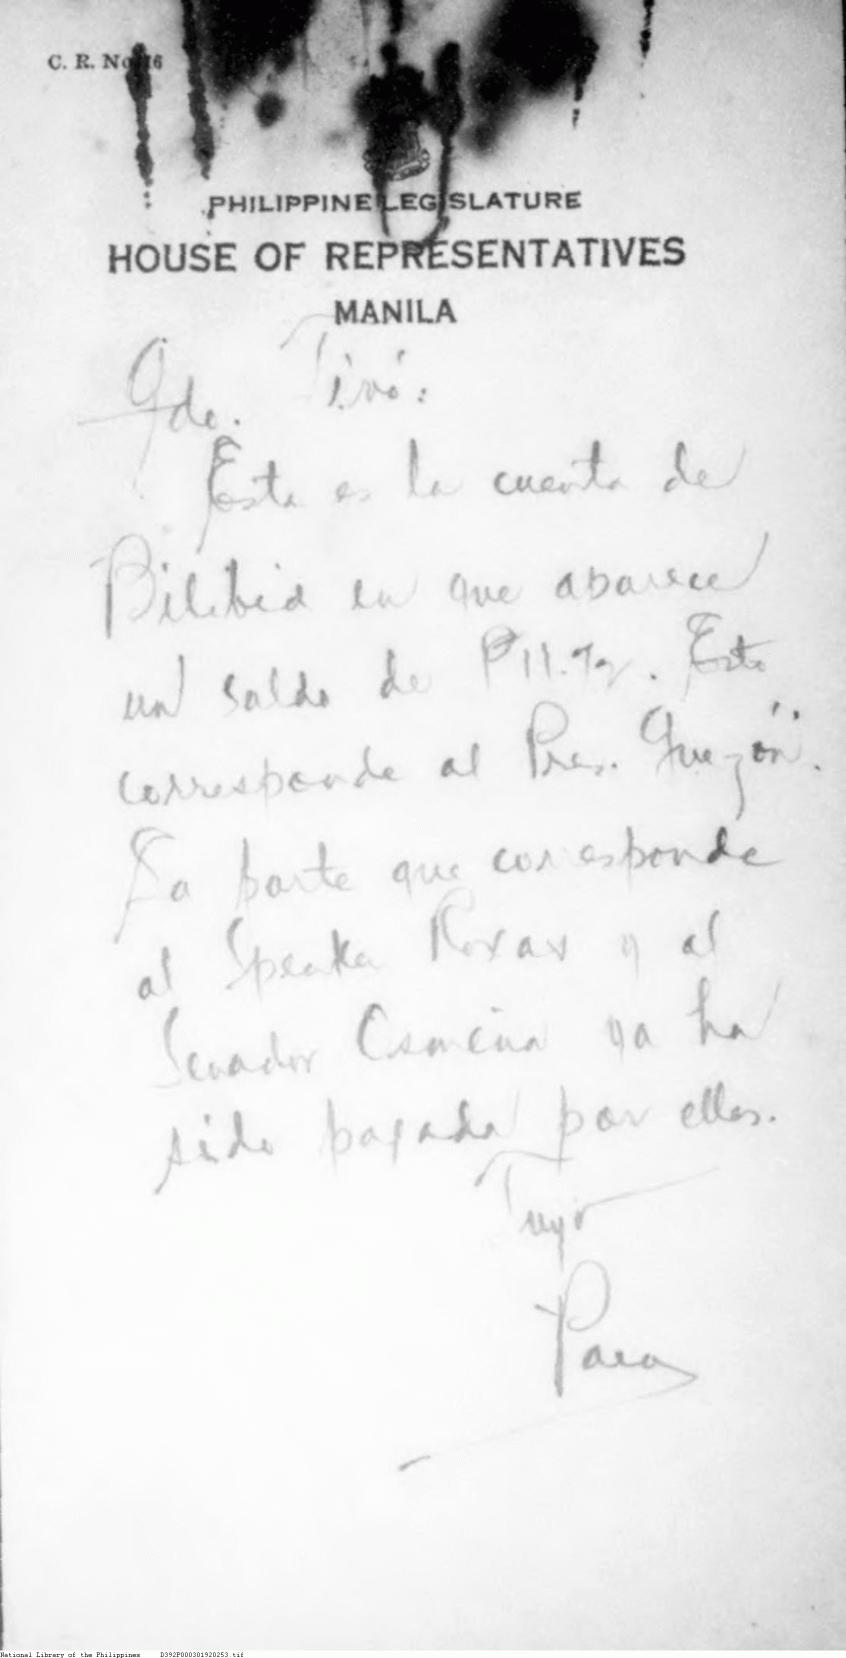 C. R. No. 16
PHILIPPINE LEGISLATURE
HOUSE OF REPRESENTATIVES
MANILA
Qdo. Tivó:
Esta es la cuenta de
Bilibid en que aparece
un saldo de ₱11.72. Esto
corresponde al Pres. Quezón.
La parte que corresponde
al Speaker Roxas y al
Senador Osmeña ya ha
sido pagada por ellos.
Tuyo
National Library of the Philippines D392P000301920253.tif